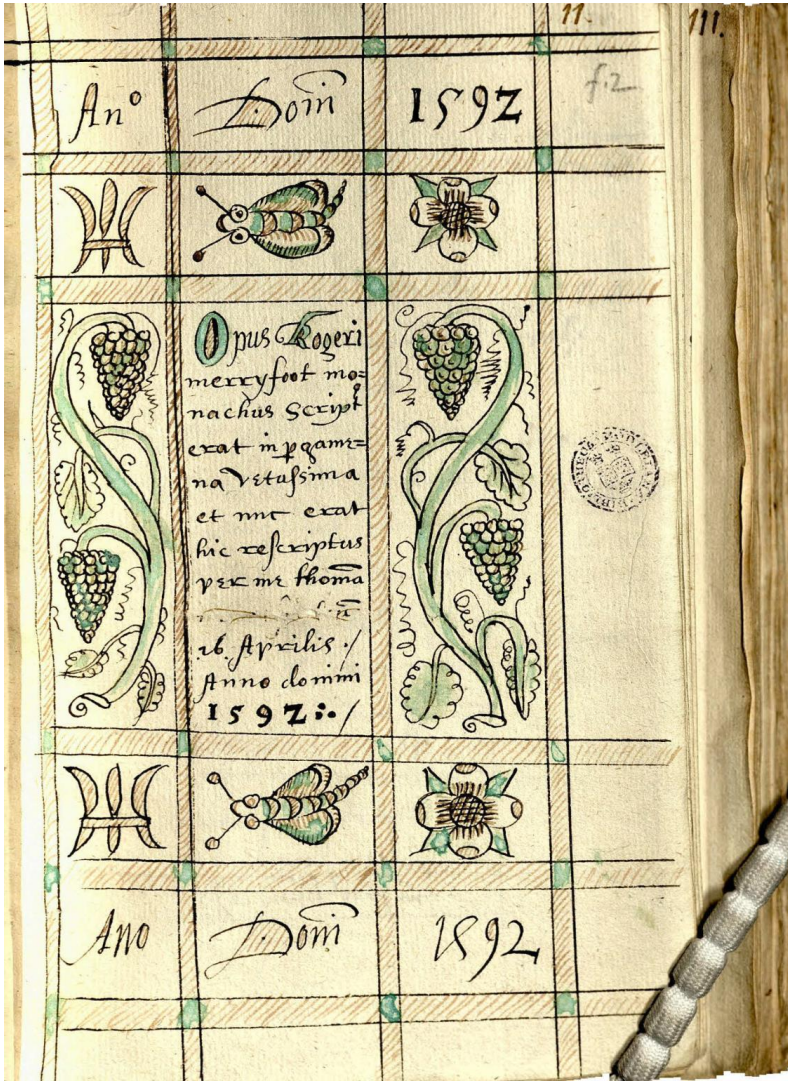 11.
111.
f.2
An° Domī 1592
Opus Rogeri
merryfoot mo=
nachus Script
erat in pgame=
na vetussima
et nūc erat
hic rescriptus
per me thomā
16. Aprilis ./
Anno domini
1592 :. /
BIBLIOTHECA BODLEIANA
Ano Domī 1592